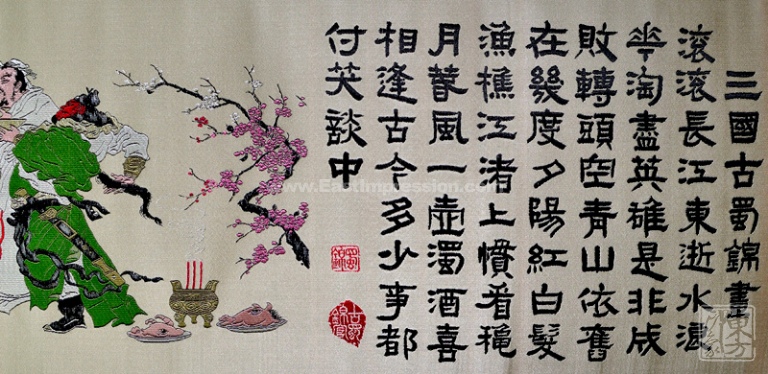 三國古蜀錦畫
滾滾長江東逝水浪
華淘盡英雄是非成
敗轉頭空青山依舊
在幾度夕陽紅白髮
漁樵江渚上慣看穐
月春風一壺濁酒喜
相逢古今多少事都
付笑談中
蜀錦
古蜀錦官
www.EastImpression.com
東方